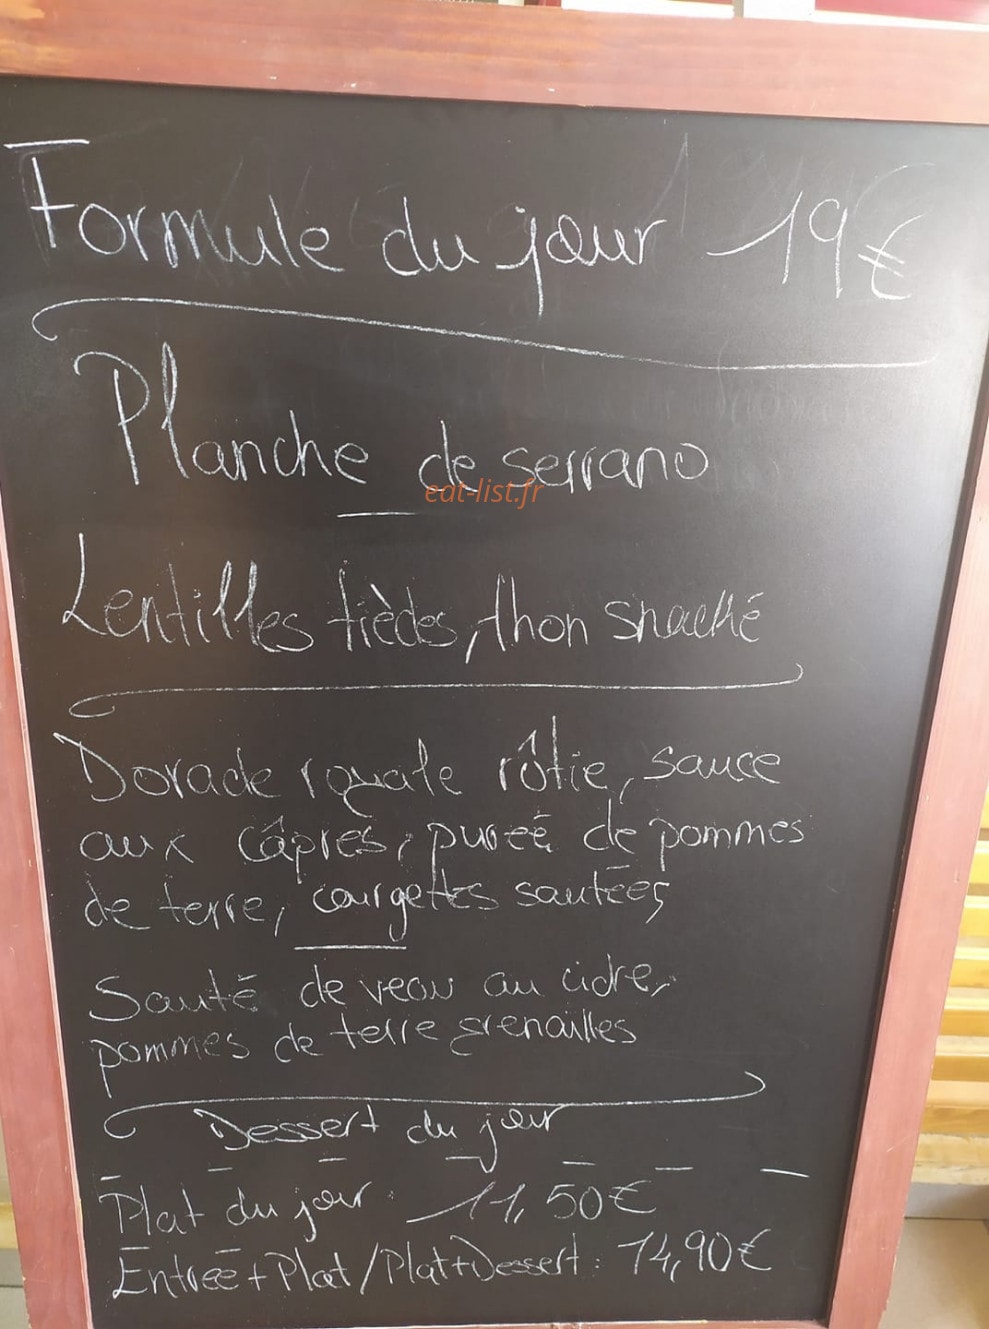 Formule du jour 19€
Planche de serrano
eat-list.fr
Lentilles tièdes, thon snacké
Dorade royale rôtie, sauce
aux câpres, pureé de pommes
de terre, courgettes sautées
Sauté de veau au cidre,
pommes de terre grenailles
Dessert du jour
Plat du jour : 11,50€
Entrée+Plat/Plat+Dessert : 14,90€